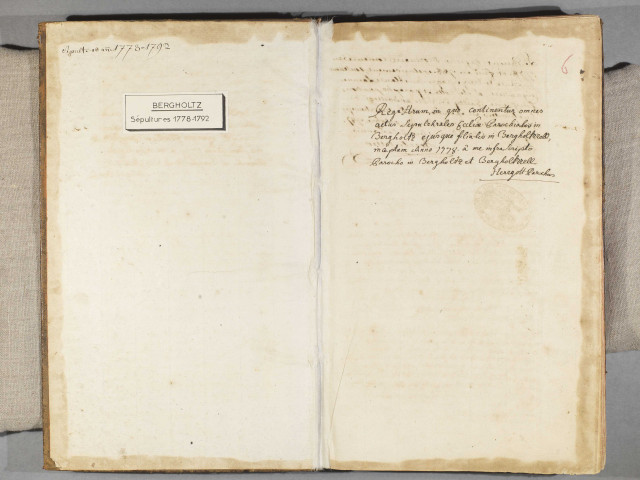 Sépultures 1778-1792
BERGHOLTZ
Sépultures 1778-1792
6
Registrum, in quo continentur omnes
actus Sepulchrales Parochialis in
Bergholtz ejusque filialis in Bergholtzell,
inceptum Anno 1778. à me infra scripto
Parocho in Bergholtz et Bergholtzell.
Herrgott Parochus